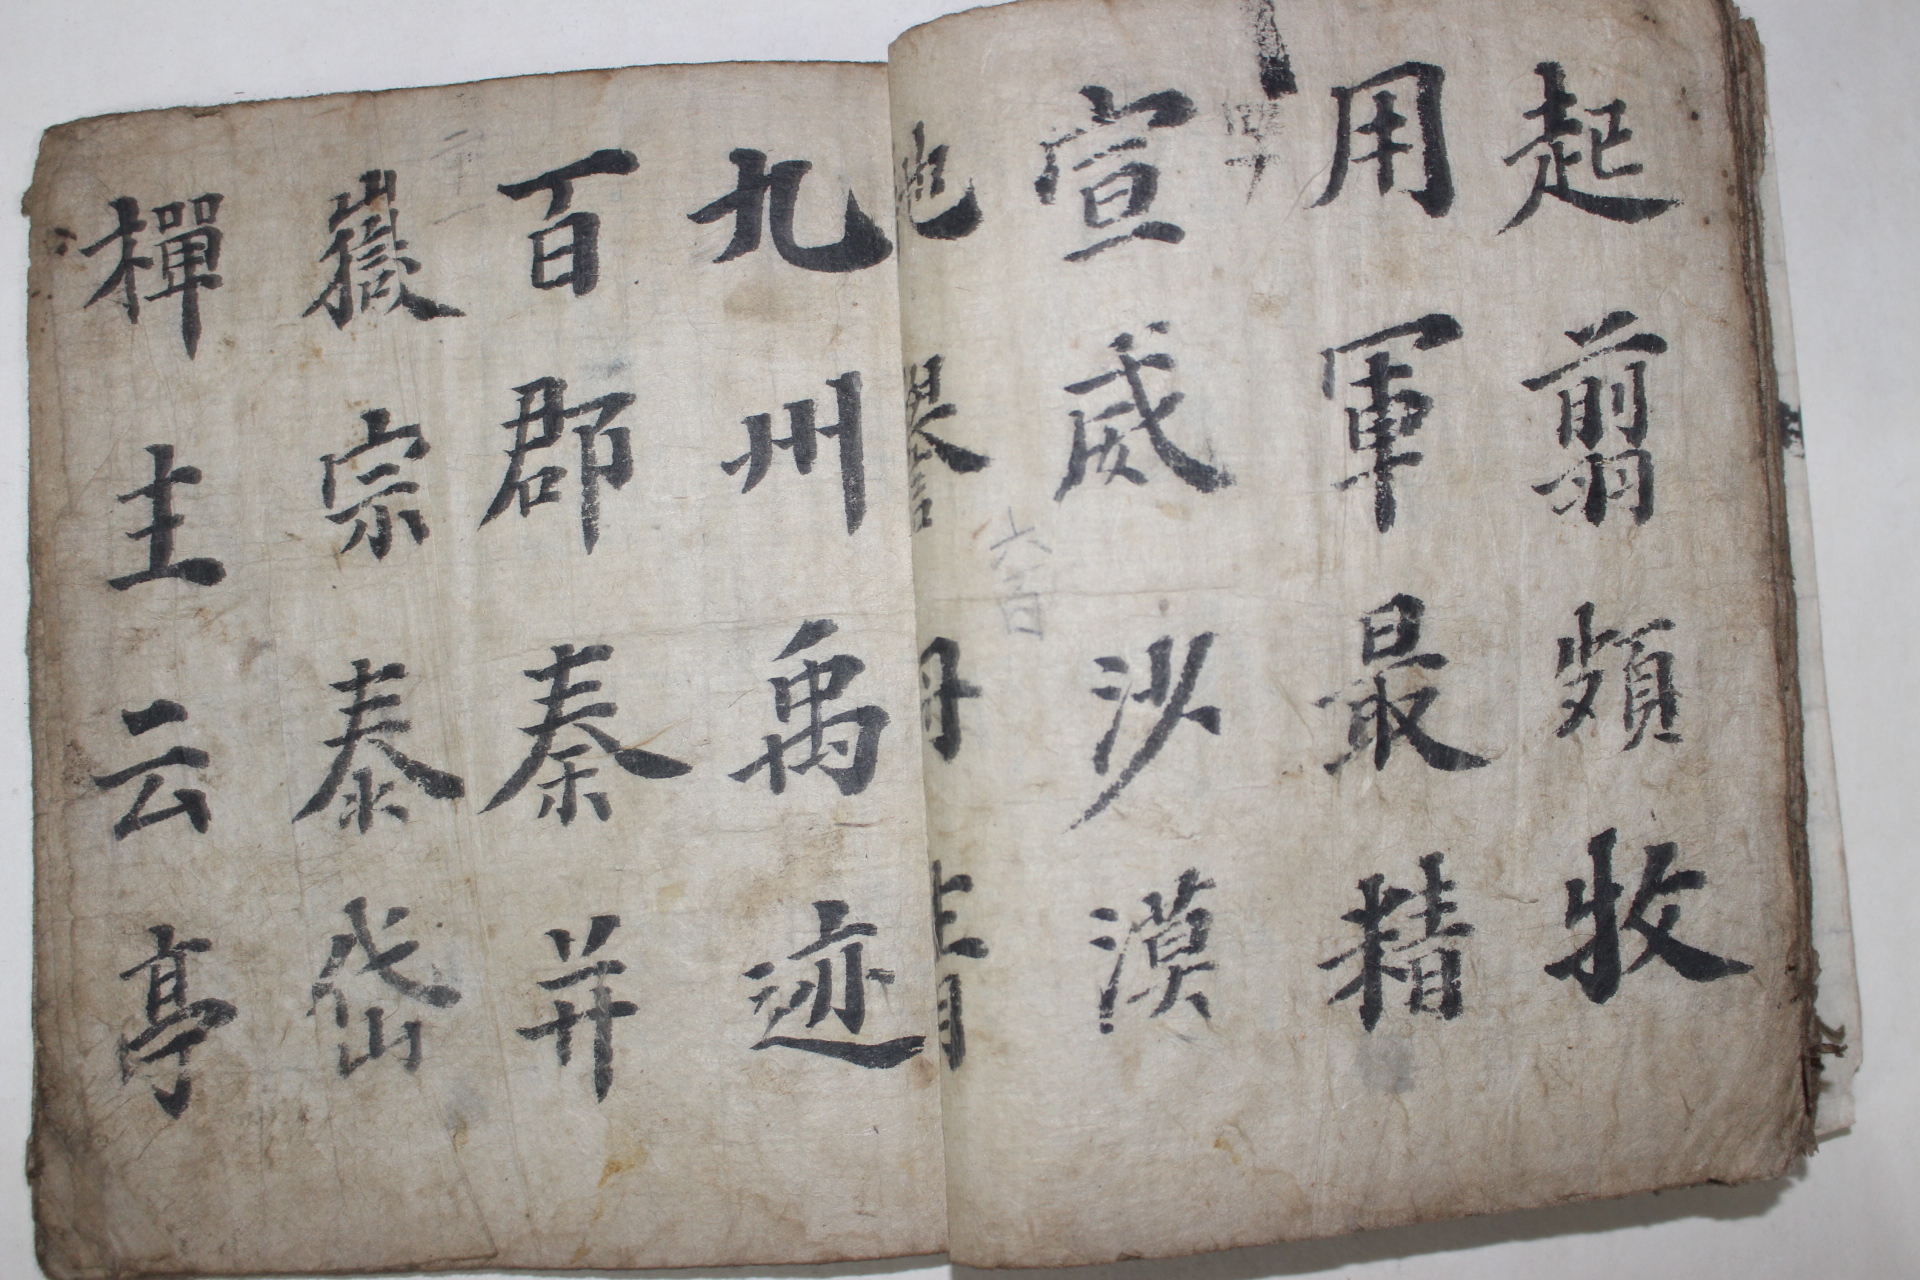 起翦頗牧
用軍最精
宣威沙漠
馳譽丹青
九州禹迹
百郡秦并
嶽宗泰岱
禪主云亭
六百